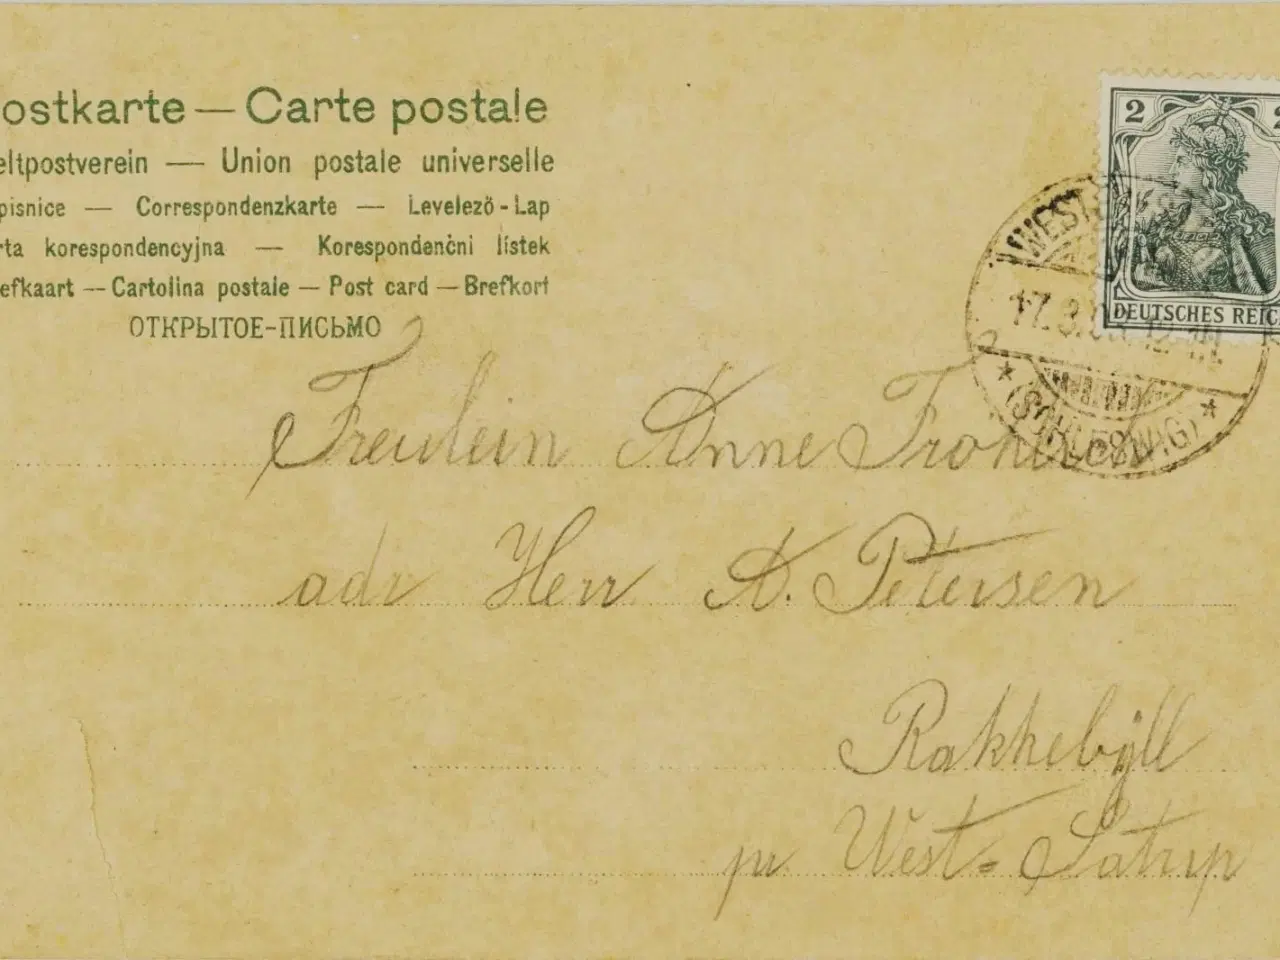 ostkarte — Carte postale
eltpostverein — Union postale universelle
pisnice — Correspondenzkarte — Levelező-Lap
rta korespondencyjna — Korespondenčni lístek
efkaart — Cartolina postale — Post card — Brefkort
ОТКРЫТОЕ-ПИСЬМО
2 2
DEUTSCHES REIC
WEST
17. 3. 12-1N.
(SCHLESWIG)
Freulein Anne
adr Herr A. Petersen
Rakkebÿll
pr West-Satrup